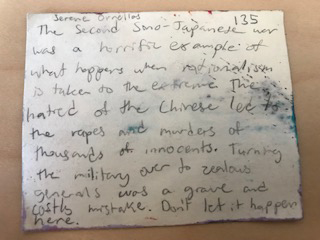 Serene Ornellas
135
The Second Sino-Japanese war
was a horrific example of
what happens when nationalism
is taken to the extreme. The
hatred of the Chinese led to
the rapes and murders of
thousands of innocents. Turning
the military over to zealous
generals was a grave and
costly mistake. Don't let it happen
here.